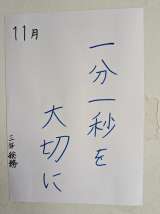 11月
一分一秒を
大切に